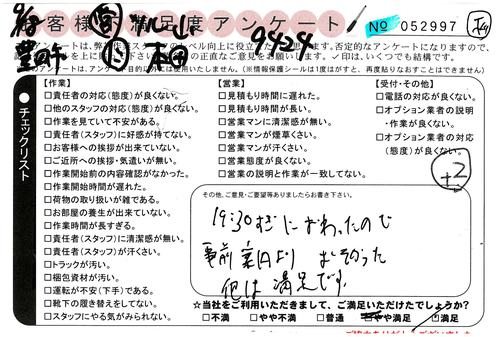 お客様不満足度アンケート
No 052997
9424
【作業】
□責任者の対応(態度)が良くない。
□他のスタッフの対応(態度)が良くない。
□作業を見ていて不安がある。
□責任者(スタッフ)に好感が持てない。
□お客様への挨拶が出来ていない。
□ご近所への挨拶・気遣いが無い。
□作業開始前の内容確認がなかった。
□作業開始時間が遅れた。
□荷物の取り扱いが雑である。
□お部屋の養生が出来ていない。
□作業時間が長すぎる。
□責任者(スタッフ)に清潔感が無い。
□責任者(スタッフ)が汗くさい。
□トラックが汚い。
□梱包資材が汚い。
□運転が不安(下手)である。
□靴下の履き替えをしてない。
□スタッフにやる気がみられない。
【営業】
□見積もり時間に遅れた。
□見積もり時間が長い。
□営業マンに清潔感が無い。
□営業マンが煙草くさい。
□営業マンが汗くさい。
□営業態度が良くない。
□営業の説明と作業が一致してない。
【受付・その他】
□電話の対応が良くない。
□オプション業者の説明
・作業が良くない。
□オプション業者の対応
(態度)が良くない。
チェックリスト
+2
その他、ご意見・ご要望等ありましたらお書き下さい。
19:30すぎにおわったので
事前案内より おそかった
他は満足です。
☆当社をご利用いただきまして、ご満足いただけたでしょうか?
□不満 □やや不満 □普通 □やや満足 □満足